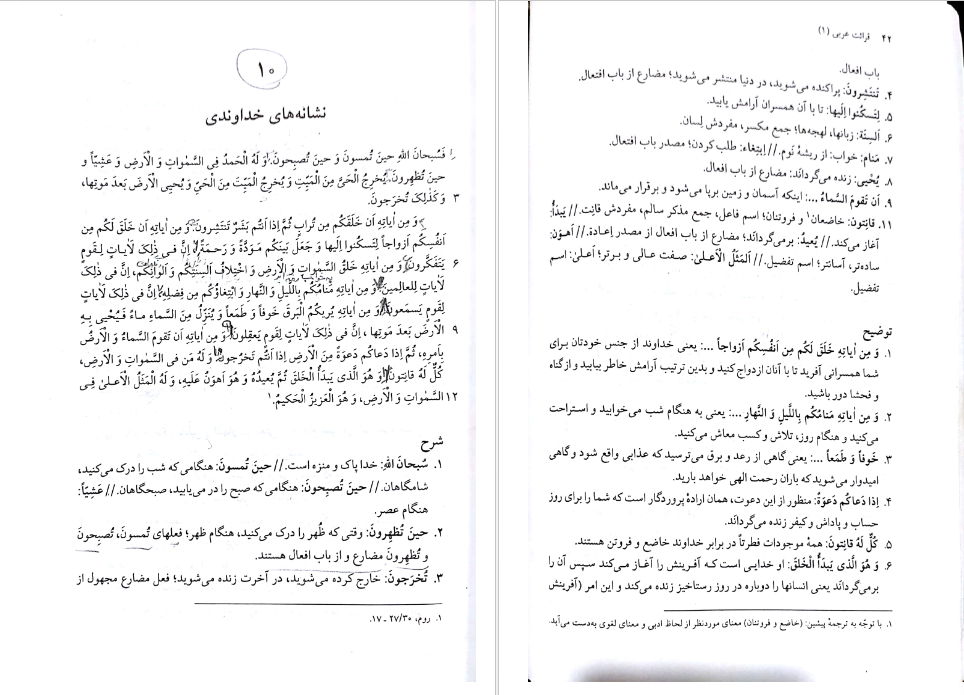 ۱۰
نشانه‌های خداوندی
فَسُبحانَ اللهِ حینَ تُمسونَ وَ حینَ تُصبِحونَ. وَ لَهُ الْحَمدُ فِی السَّمٰواتِ وَ الْاَرضِ وَ عَشِیّاً وَ
حینَ تُظهِرونَ. یُخرِجُ الْحَیَّ مِنَ الْمَیِّتِ وَ یُخرِجُ الْمَیِّتَ مِنَ الْحَیِّ وَ یُحیِی الْاَرضَ بَعدَ مَوتِها،
وَ کَذٰلِکَ تُخرَجونَ. ۳
وَ مِن اٰیاتِهِ اَن خَلَقَکُم مِن تُرابٍ ثُمَّ اِذا اَنتُم بَشَرٌ تَنتَشِرونَ. وَ مِن اٰیاتِهِ اَن خَلَقَ لَکُم مِن
اَنفُسِکُم اَزواجاً لِتَسکُنوا اِلَیها وَ جَعَلَ بَینَکُم مَوَدَّةً وَ رَحمَةً، اِنَّ فی ذٰلِکَ لَاٰیاتٍ لِقَومٍ
یَتَفَکَّرونَ. وَ مِن اٰیاتِهِ خَلقُ السَّمٰواتِ وَ الْاَرضِ وَ اخْتِلافُ اَلسِنَتِکُم وَ اَلوانِکُم، اِنَّ فی ذٰلِکَ ۶
لَاٰیاتٍ لِلعالِمینَ. وَ مِن اٰیاتِهِ مَنامُکُم بِاللَّیلِ وَ النَّهارِ وَ ابْتِغاؤُکُم مِن فَضلِهِ، اِنَّ فی ذٰلِکَ لَاٰیاتٍ
لِقَومٍ یَسمَعونَ. وَ مِن اٰیاتِهِ یُریکُمُ الْبَرقَ خَوفاً وَ طَمَعاً وَ یُنَزِّلُ مِنَ السَّماءِ ماءً فَیُحیی بِهِ
الْاَرضَ بَعدَ مَوتِها، اِنَّ فی ذٰلِکَ لَاٰیاتٍ لِقَومٍ یَعقِلونَ. وَ مِن اٰیاتِهِ اَن تَقومَ السَّماءُ وَ الْاَرضُ ۹
بِاَمرِهِ، ثُمَّ اِذا دَعاکُم دَعوَةً مِنَ الْاَرضِ اِذا اَنتُم تَخرُجونَ. وَ لَهُ مَن فِی السَّمٰواتِ وَ الْاَرضِ،
کُلٌّ لَهُ قانِتونَ. وَ هُوَ الَّذی یَبدَأُ الْخَلقَ ثُمَّ یُعیدُهُ وَ هُوَ اَهوَنُ عَلَیهِ، وَ لَهُ الْمَثَلُ الْاَعلیٰ فِی
السَّمٰواتِ وَ الْاَرضِ، وَ هُوَ الْعَزیزُ الْحَکیمُ.۱ ۱۲
شرح
۱. سُبحانَ اللهِ: خدا پاک و منزه است. // حینَ تُمسونَ: هنگامی که شب را درک می‌کنید،
شامگاهان. // حینَ تُصبِحونَ: هنگامی که صبح را در می‌یابید، صبحگاهان. // عَشِیّاً:
هنگام عصر.
۲. حینَ تُظهِرونَ: وقتی که ظُهر را درک می‌کنید، هنگام ظهر؛ فعلهای تُمسونَ، تُصبِحونَ
و تُظهِرونَ مضارع و از باب افعال هستند.
۳. تُخرَجونَ: خارج کرده می‌شوید، در آخرت زنده می‌شوید؛ فعل مضارع مجهول از
۱. روم، ۲۷/۳۰ ـ ۱۷.
۴۲ قرائت عربی (۱)
باب افعال.
۴. تَنتَشِرونَ: پراکنده می‌شوید، در دنیا منتشر می‌شوید؛ مضارع از باب افتعال.
۵. لِتَسکُنوا اِلَیها: تا با آن همسران آرامش یابید.
۶. اَلسِنَة: زبانها، لهجه‌ها؛ جمع مکسر، مفردش لِسان.
۷. مَنام: خواب؛ از ریشهٔ نَوم. // اِبتِغاء: طلب کردن؛ مصدر باب افتعال.
۸. یُحْیی: زنده می‌گرداند؛ مضارع از باب افعال.
۹. اَن تَقومَ السَّماءُ ...: اینکه آسمان و زمین برپا می‌شود و برقرار می‌ماند.
۱۱. قانِتون: خاضعان۱ و فروتنان؛ اسم فاعل، جمع مذکر سالم، مفردش قانِت. // یَبدَأُ:
آغاز می‌کند. // یُعیدُ: برمی‌گرداند؛ مضارع از باب افعال از مصدر إعادة. // أهوَن:
ساده‌تر، آسانتر؛ اسم تفضیل. // اَلْمَثَلُ الْاَعلیٰ: صفت عالی و برتر؛ أعلیٰ: اسم
تفضیل.
توضیح
۱. وَ مِن اٰیاتِهِ خَلَقَ لَکُم مِن اَنفُسِکُم اَزواجاً ...: یعنی خداوند از جنس خودتان برای
شما همسرانی آفرید تا با آنان ازدواج کنید و بدین ترتیب آرامش خاطر بیابید و از گناه
و فحشا دور باشید.
۲. وَ مِن اٰیاتِهِ مَنامُکُم بِاللَّیلِ وَ النَّهارِ ...: یعنی به هنگام شب می‌خوابید و استراحت
می‌کنید و هنگام روز، تلاش و کسب معاش می‌کنید.
۳. خَوفاً وَ طَمَعاً ...: یعنی گاهی از رعد و برق می‌ترسید که عذابی واقع شود و گاهی
امیدوار می‌شوید که باران رحمت الهی خواهد بارید.
۴. اِذا دَعاکُم دَعوَةً: منظور از این دعوت، همان ارادهٔ پروردگار است که شما را برای روز
حساب و پاداش و کیفر زنده می‌گرداند.
۵. کُلٌّ لَهُ قانِتونَ: همهٔ موجودات فطرتاً در برابر خداوند خاضع و فروتن هستند.
۶. وَ هُوَ الَّذی یَبدَأُ الْخَلقَ: او خدایی است که آفرینش را آغاز می‌کند سپس آن را
برمی‌گرداند یعنی انسانها را دوباره در روز رستاخیز زنده می‌کند و این امر (آفرینش
۱. با توجّه به ترجمهٔ پیشین: (خاضع و فروتنان) معنای موردنظر از لحاظ ادبی و معنای لغوی به‌دست می‌آید.